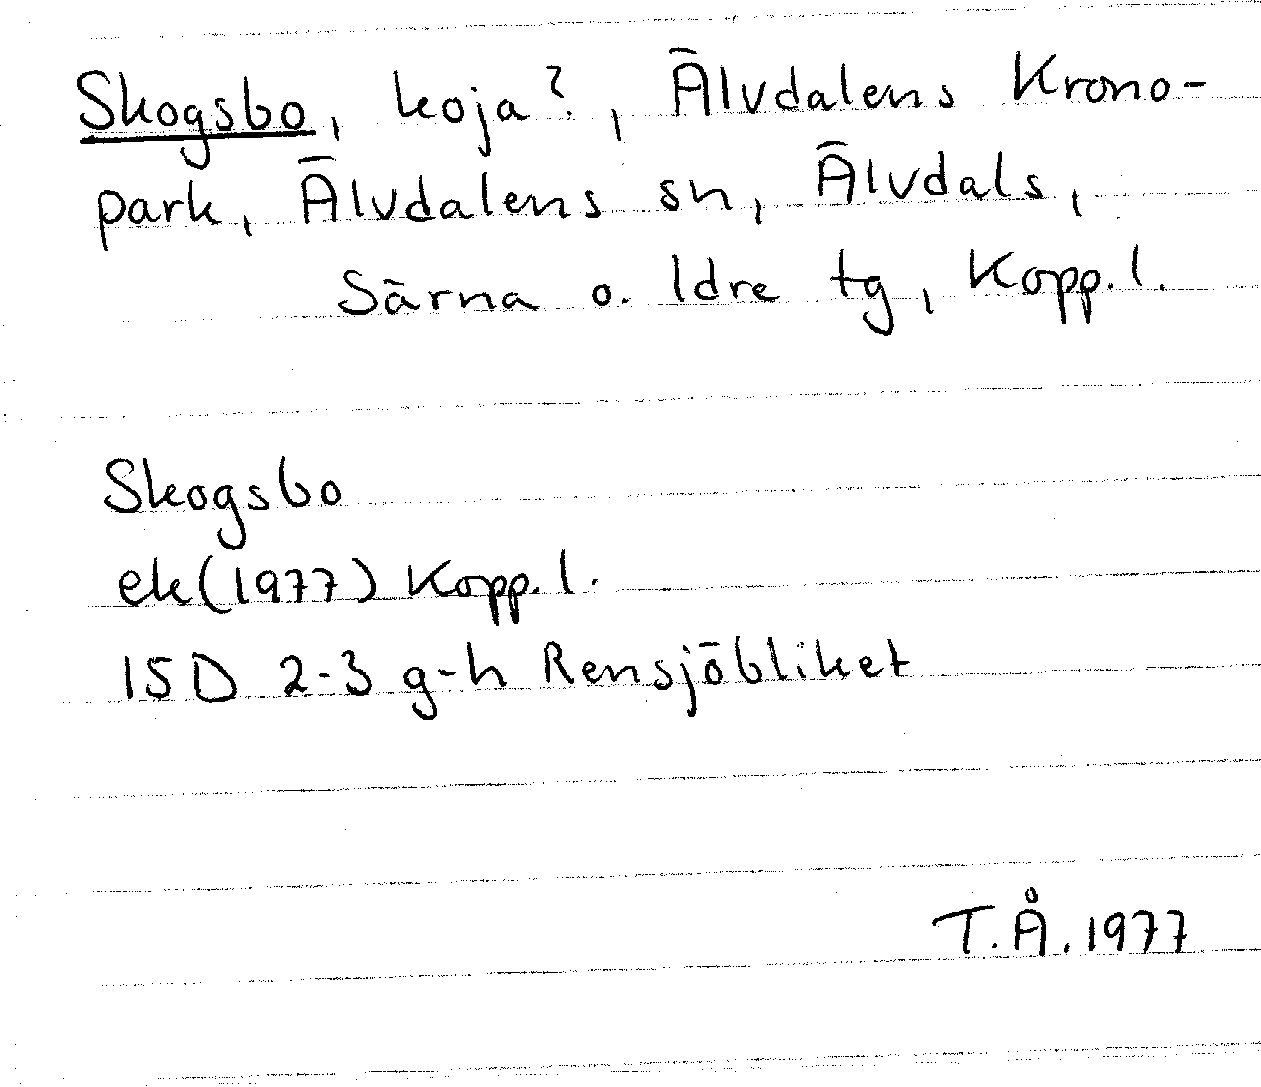 Skogsbo, koja?, Älvdalens Krono-
park, Älvdalens sn, Älvdals,
Särna o. Idre tg, Kopp. l.
Skogsbo
ek(1977) Kopp. l.
15D 2-3 g-h Rensjöbliket
T.Å. 1977